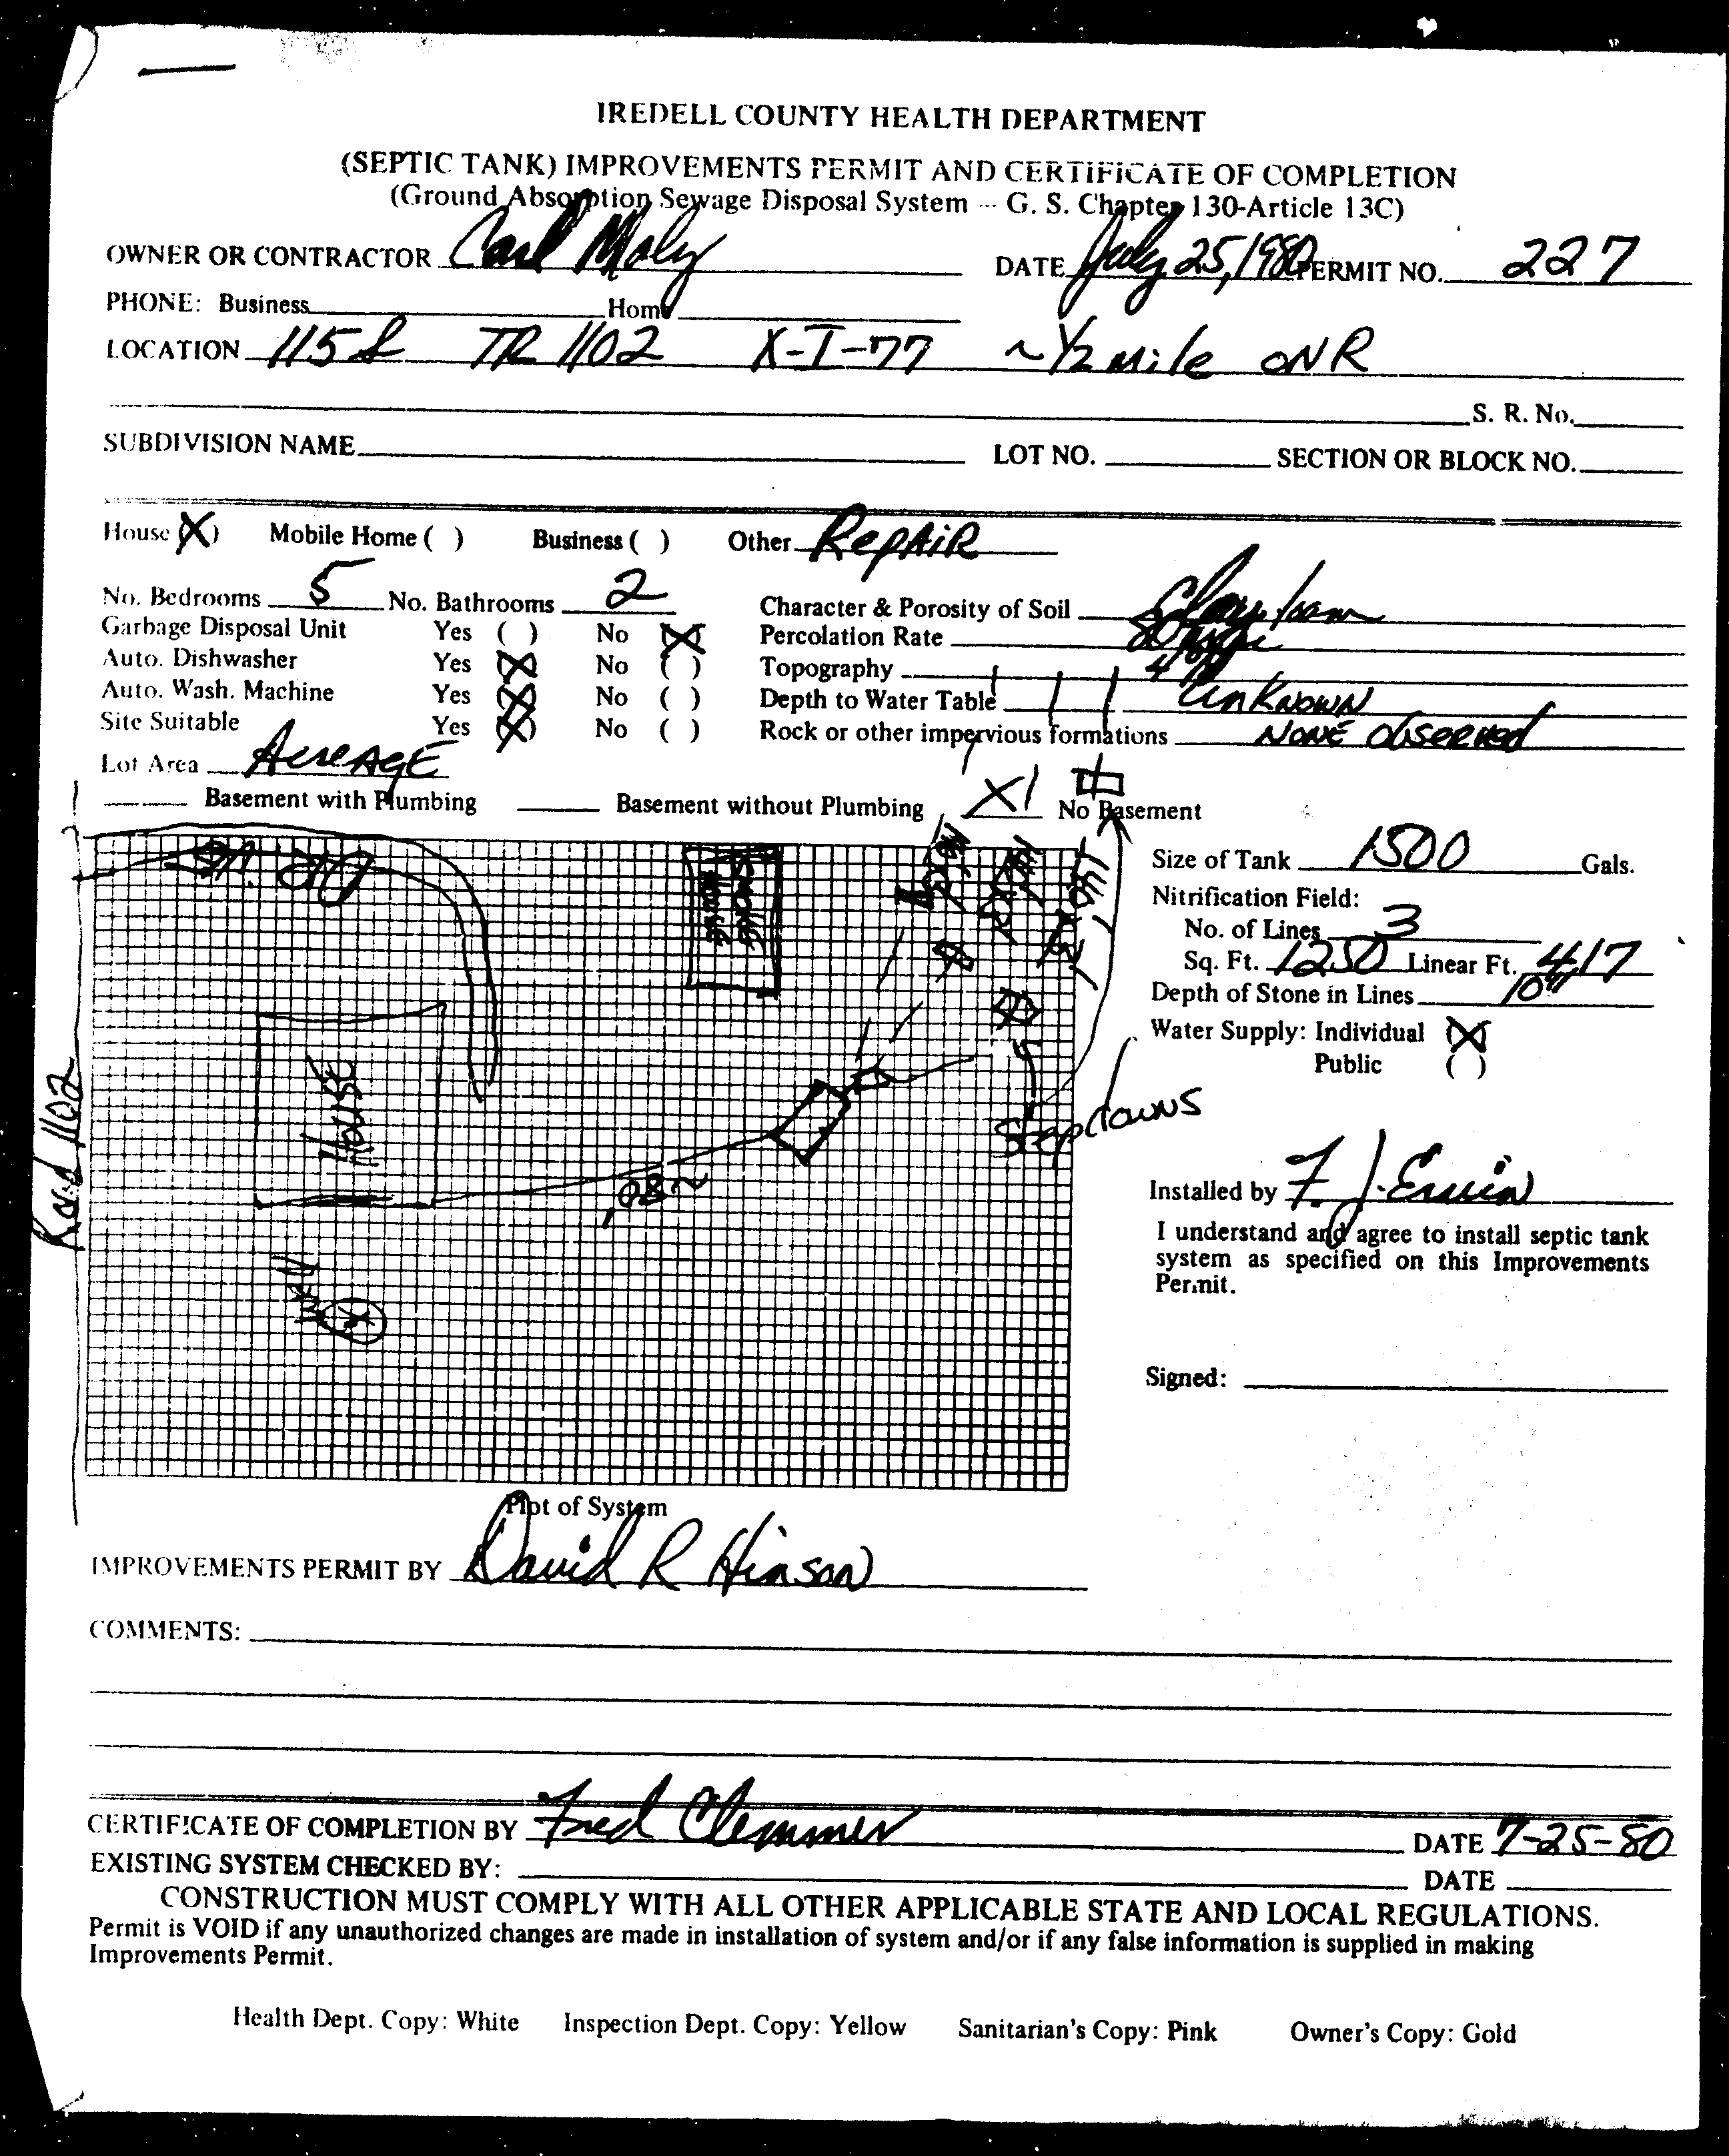 IREDELL COUNTY HEALTH DEPARTMENT
(SEPTIC TANK) IMPROVEMENTS PERMIT AND CERTIFICATE OF COMPLETION
(Ground Absorption Sewage Disposal System --- G. S. Chapter 130-Article 13C)
OWNER OR CONTRACTOR Carl DATE July 25, 1980 PERMIT NO. 227
PHONE: Business Home
LOCATION 115 S TR 1102 X-I-77 ~ 1/2 Mile ON R
S. R. No.
SUBDIVISION NAME LOT NO. SECTION OR BLOCK NO.
House (X) Mobile Home ( ) Business ( ) Other Repair
No. Bedrooms 5 No. Bathrooms 2 Character & Porosity of Soil Clay loam
Garbage Disposal Unit Yes ( ) No (X) Percolation Rate
Auto. Dishwasher Yes (X) No ( ) Topography
Auto. Wash. Machine Yes (X) No ( ) Depth to Water Table Unknown
Site Suitable Yes (X) No ( ) Rock or other impervious formations NONE observed
Lot Area AcreAGE
Basement with Plumbing Basement without Plumbing X No Basement
Size of Tank 1500 Gals.
Nitrification Field:
No. of Lines 3
Sq. Ft. 1250 Linear Ft. 417
Depth of Stone in Lines 10"
Water Supply: Individual (X)
Public ( )
DRIVE
SMOKE
HOUSE
House
Road 1102
~280'
Stepdowns
Installed by F. J. Erwin
I understand and agree to install septic tank
system as specified on this Improvements
Permit.
Signed:
Plot of System
IMPROVEMENTS PERMIT BY David R Hinson
COMMENTS:
CERTIFICATE OF COMPLETION BY Fred Clemmer DATE 7-25-80
EXISTING SYSTEM CHECKED BY: DATE
CONSTRUCTION MUST COMPLY WITH ALL OTHER APPLICABLE STATE AND LOCAL REGULATIONS.
Permit is VOID if any unauthorized changes are made in installation of system and/or if any false information is supplied in making
Improvements Permit.
Health Dept. Copy: White Inspection Dept. Copy: Yellow Sanitarian's Copy: Pink Owner's Copy: Gold